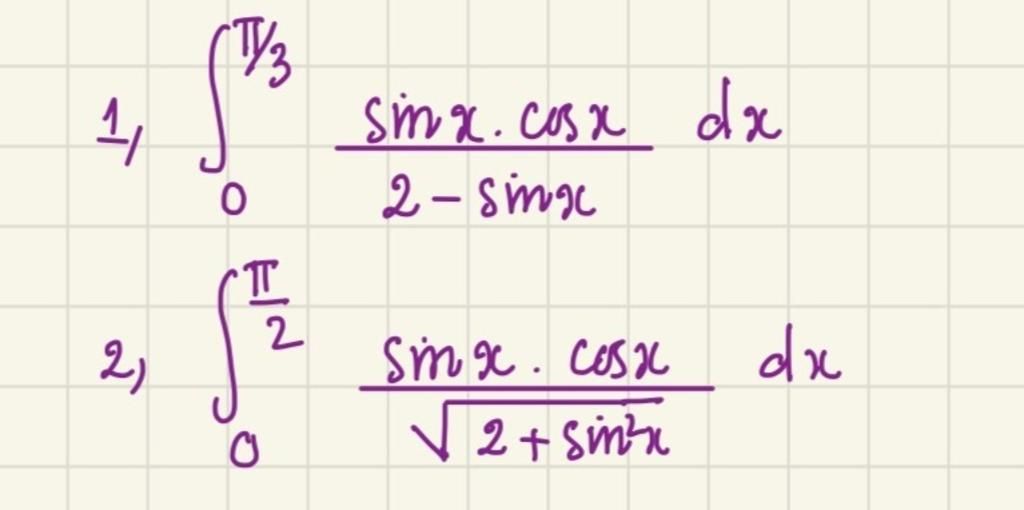 1, ∫₀^{π/3} (sinx . cosx)/(2 - sinx) dx
2, ∫₀^{π/2} (sinx . cosx)/√(2 + sin²x) dx